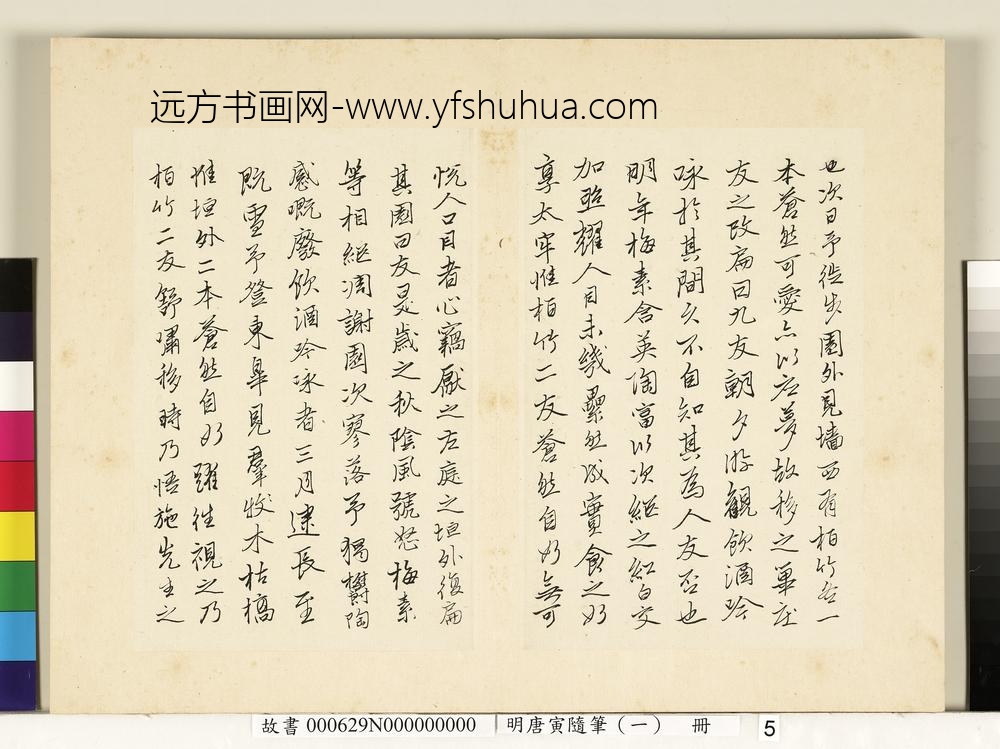 远方书画网-www.yfshuhua.com
也次日予徒步園外見墻西有柏竹各一
本蒼然可愛亦以應夢故移之單庄
友之改扁曰九友朝夕游觀飲酒吟
咏於其間亦不自知其為人友否也
明年梅素含英陶富以次继之紅白交
加照耀人目未幾纍然成實食之如
享太牢惟柏竹二友蒼然自如無可
悦人口目者心竊厭之左庭之垣外復扁
其園曰友是歲之秋陰風號怒梅素
等相继凋謝園次寥落予獨欝陶
感嘅廢飲酒吟咏者三月逮長至
既雪予登東皐見羣卉木枯槁
惟垣外二本蒼然自如躍往視之乃
柏竹二友舒嘯移時乃悟施先生之
故書 000629N000000000 明唐寅隨筆（一） 冊 5